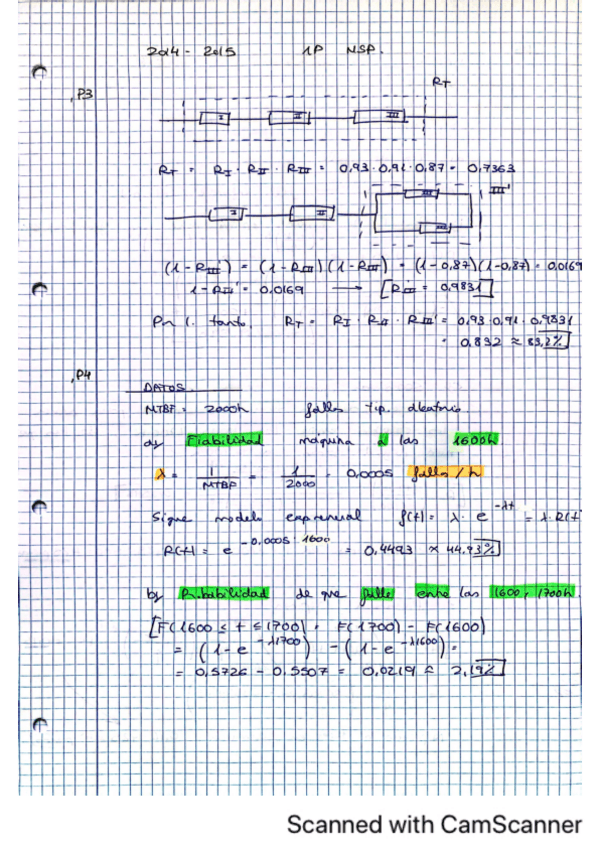 2014 - 2015 1P NSP.
P3
RT
I II III
RT = RI · RII · RIII = 0,93 · 0,91 · 0,87 = 0,7363
III'
I II III
III
(1-RIII') = (1-RIII)(1-RIII) = (1-0,87)(1-0,87) = 0,0169
1-RIII' = 0,0169 → [RIII' = 0,9831]
Por l. tanto, RT = RI · RII · RIII' = 0,93 · 0,91 · 0,9831
= 0,832 ≈ 83,2%
P4
DATOS
MTBF = 2000h fallos tip. aleatorio
a) Fiabilidad máquina a las 1600h
λ = 1/MTBF = 1/2000 = 0,0005 fallos/h
Sigue modelo exponencial f(t) = λ · e^-λt = λ · R(t
R(t) = e^-0,0005·1600 = 0,4493 ≈ 44,93%
b) Probabilidad de que falle entre las 1600 y 1700h
[F(1600 ≤ t ≤ 1700) = F(1700) - F(1600)
= (1-e^-λ1700) - (1-e^-λ1600) =
= 0,5726 - 0,5507 = 0,0219 ≈ 2,19%
Scanned with CamScanner